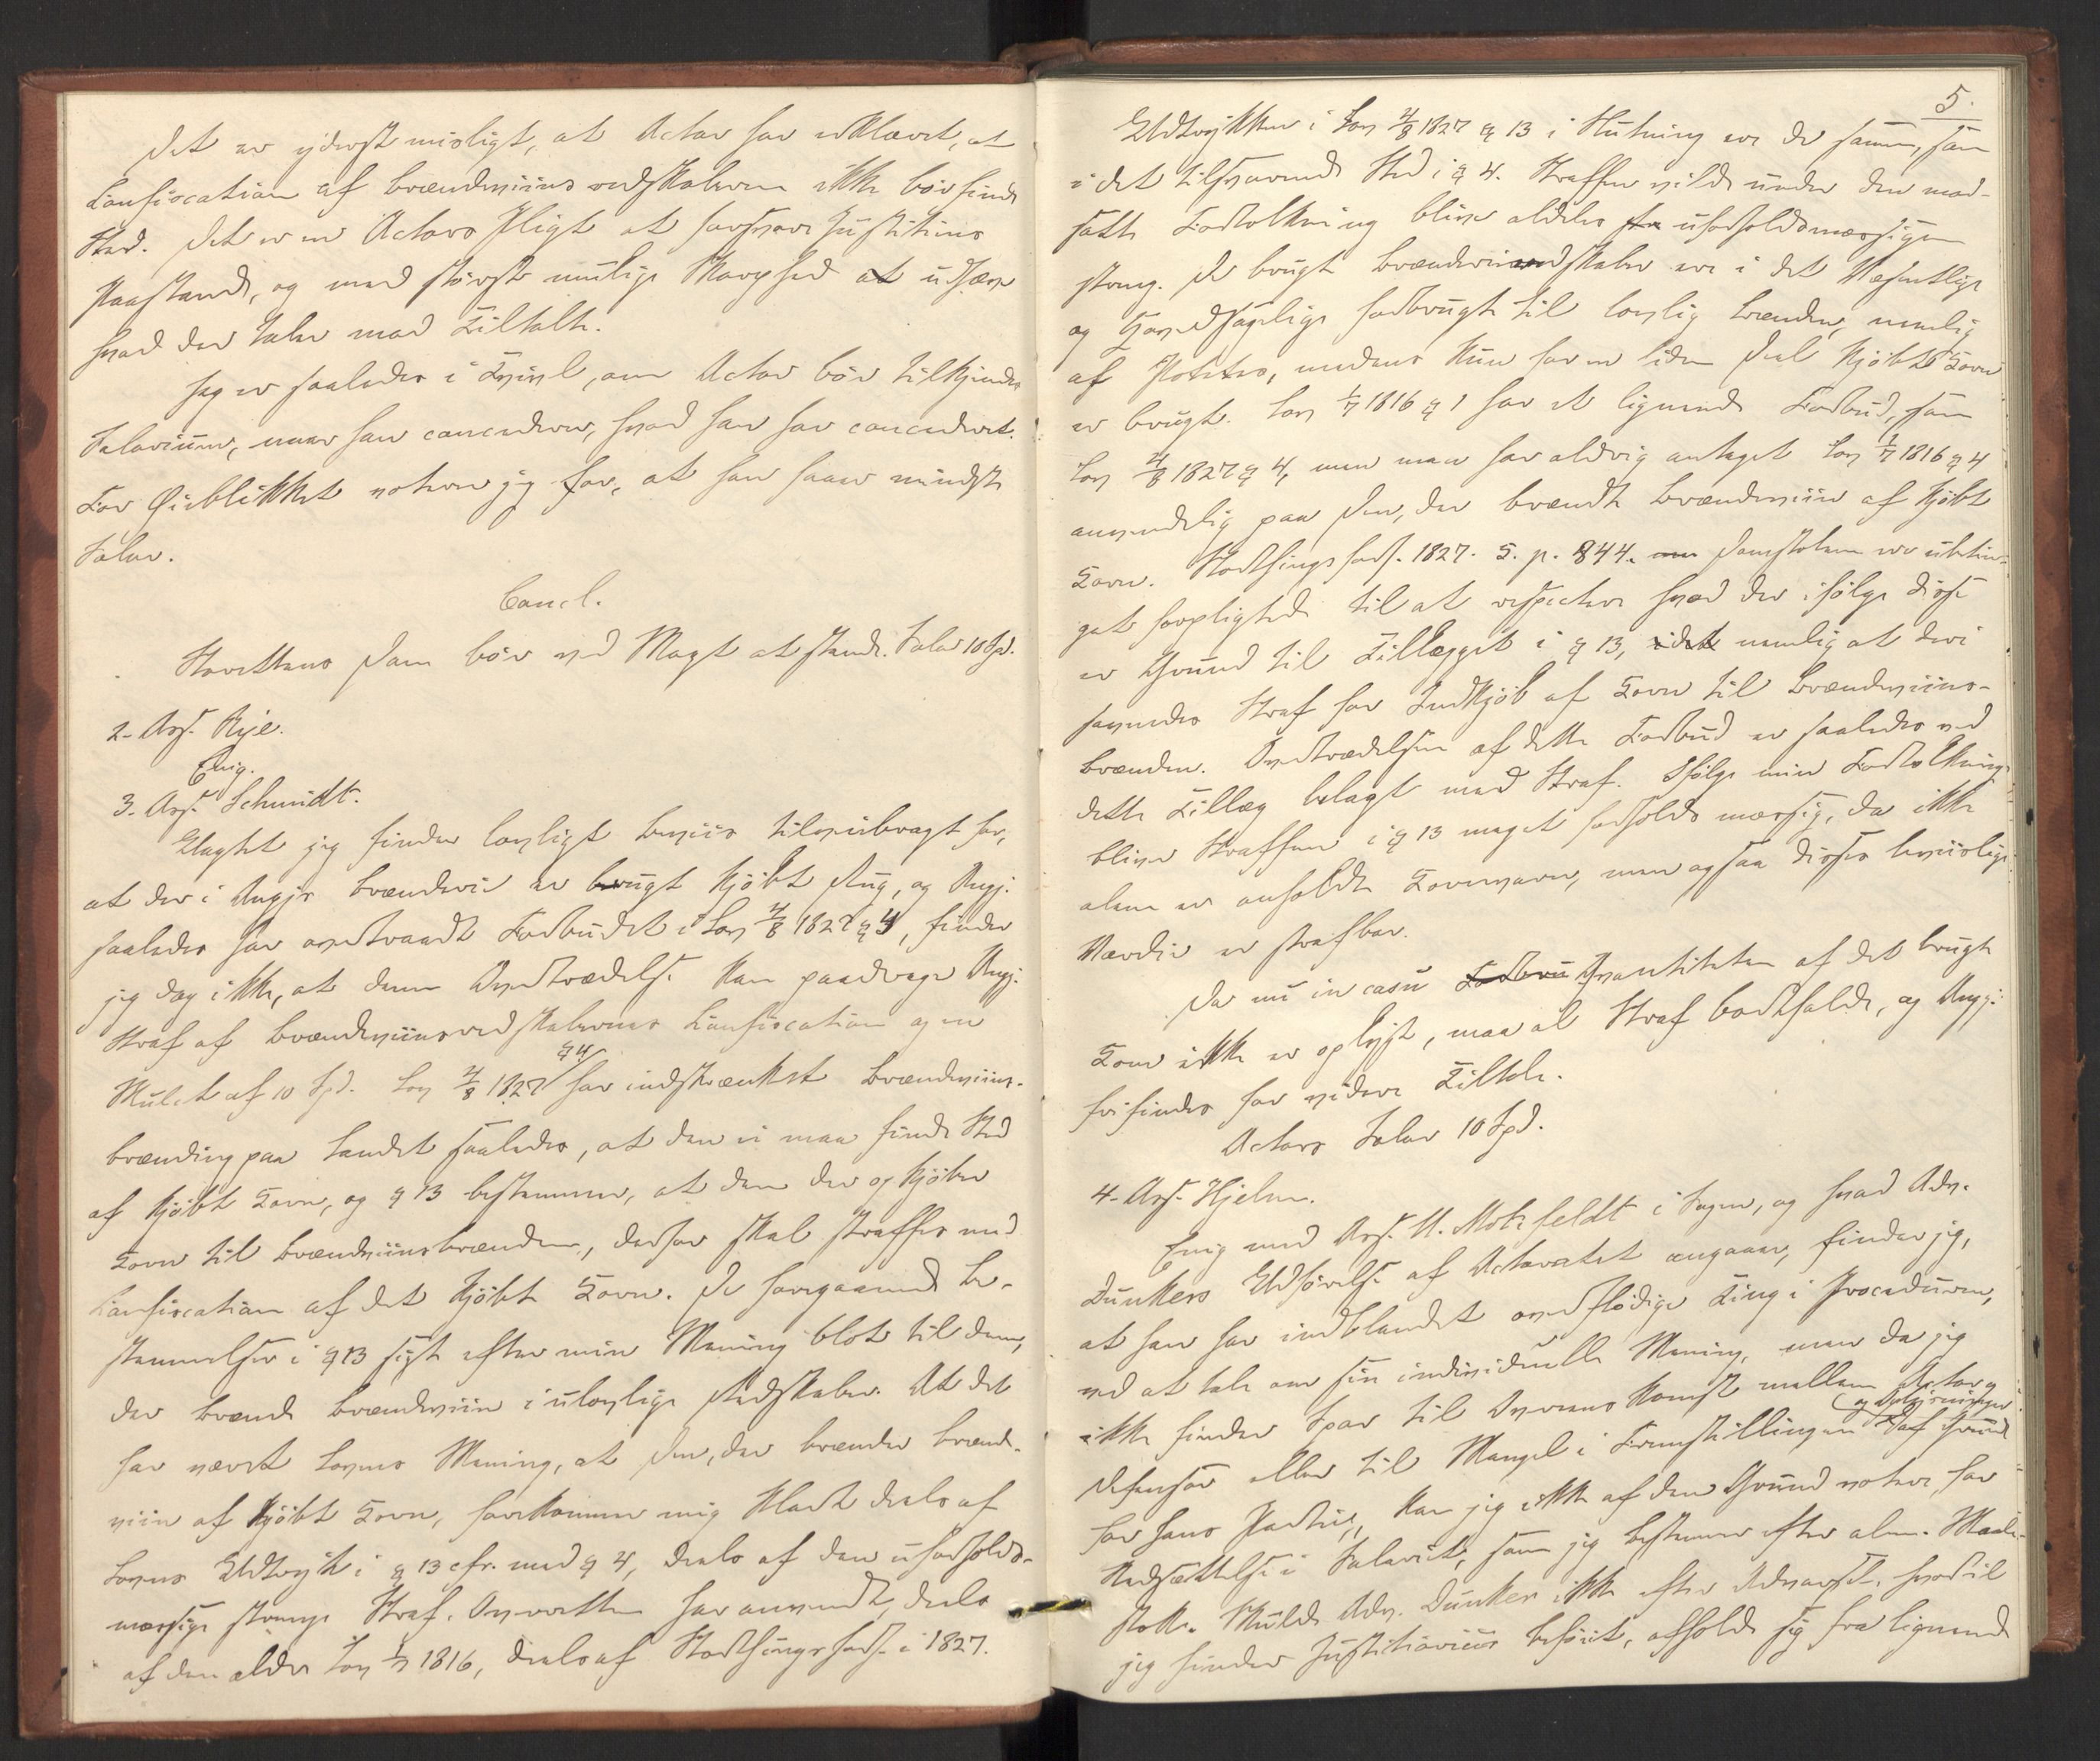 Det er yderst misligt, at Actor har erklæret, at
Confiscation af Brændeviinsredskaberne ikke bør finde
Sted. Det er en Actors Pligt at forsvare Justitiens
Paastand, og med størst mulige Skarphed at udhæve
hvad der taler mod Tiltalte.
Jeg er saaledes i Tvivl, om Actor bør tilkjendes
Salarium, naar han concederer, hvad han har concederet.
For Øieblikket voterer jeg for, at han faaer mindste
Salar.
Concl.
Stovrettens Dom bør ved Magt at stande. Salar 10 Spd.
2. Ass. Rye.
Enig.
3. Ass. Schmidt.
Uagtet jeg finder lovligt Beviis tilveiebragt for,
at der i Angjs Brænderie er brugt kjøbt Rug, og Angj.
saaledes har overtraadt Forbudet i Lov 4/8 1827 § 4, finder
jeg dog ikke, at denne Overtrædelse kan paadrage Angj.
Straf af Brændeviinsredskabernes Confiscation og en
Mulct af 10 Spd. Lov 4/8 1827 § 4 har indskrænket Brændeviins-
brænding paa Landet saaledes, at den ei maa finde Sted
af kjøbt Korn, og § 13 bestemmer, at den der opkjøber
Korn til Brændeviinsbrænden, derfor skal straffes med
Confiscation af det kjøbte Korn. De foregaaende Be-
stemmelser i § 13 sigte efter min Mening blot til dem,
der brænde Brændeviin i ulovlige Redskaber. At det
har været Lovens Mening, at Den, der brænder Brænde-
viin af kjøbt Korn, forekommer mig klart deels af
Lovens Udtryk i § 13 cfr. med § 4, deels af den uforholds-
mæssige strenge Straf, Overretten har anvendt, deels
af den ældre Lov 1/7 1816, deels af Storthingsforh. i 1827.
5.
Udtrykkene i Lov 4/8 1827 § 13 i Slutning ere de samme, som
i det tilsvarende Sted i § 4. Straffen vilde under den mod-
satte Fortolkning blive aldeles uforholdsmæssigen
streng. De brugte Brænderiredskaber ere i det Væsentlige
og Hovedsagelige forbrugte til lovlig Brænden, nemlig
af Poteter, medens kun for en liden Deel kjøbt Korn
er brugt. Lov 1/7 1816 § 1 har et lignende Forbud, som
Lov 4/8 1827 § 4, men man har aldrig antaget Lov 1/7 1816 § 4
anvendelig paa Den, der brændte Brændeviin af kjøbt
Korn. Storthingsforh. 1827. 5. p. 844. Domstolene ere ubetin-
get forpligtede til at respectere hvad der ifølge disse
er Grund til Tillægget i § 13, nemlig at deri
savnedes Straf for Indkjøb af Korn til Brændeviins-
brænden. Overtrædelsen af dette Forbud er saaledes ved
dette Tillæg belagt med Straf. Ifølge min Fortolkning
bliver Straffen i § 13 meget forholdsmæssig, da ikke
alene er anholdte Kornvarer, men ogsaa disses beviislige
Værdie er strafbar.
Da nu in casu Qvantiteten af det brugte
Korn ikke er oplyst, maa al Straf bortfalde, og Angj.
frifindes for videre Tiltale.
Actors Salar 10 Spd.
4. Ass. Hjelm.
Enig med Ass. U. Motzfeldt i Sagen, og hvad Adv.
Dunkers Udførelse af Actoratet angaaer, finder jeg,
at han har indblandet overflødige Ting i Proceduren,
ved at tale om sin individuelle Mening, men da jeg
ikke finder Spor til Overeenskomst mellem Actor og
Defensor eller til Mangel i Fremstillingen og Oplysninger af Grunde
for hans Partie, kan jeg ikke af den Grund votere for
Nedsættelse i Salariet, som jeg bestemmer efter alm. Maale-
stok. Skulde Adv. Dunker ikke efter Advarsel, hvortil
jeg finder Justitiarius beføiet, afholde sig fra lignende